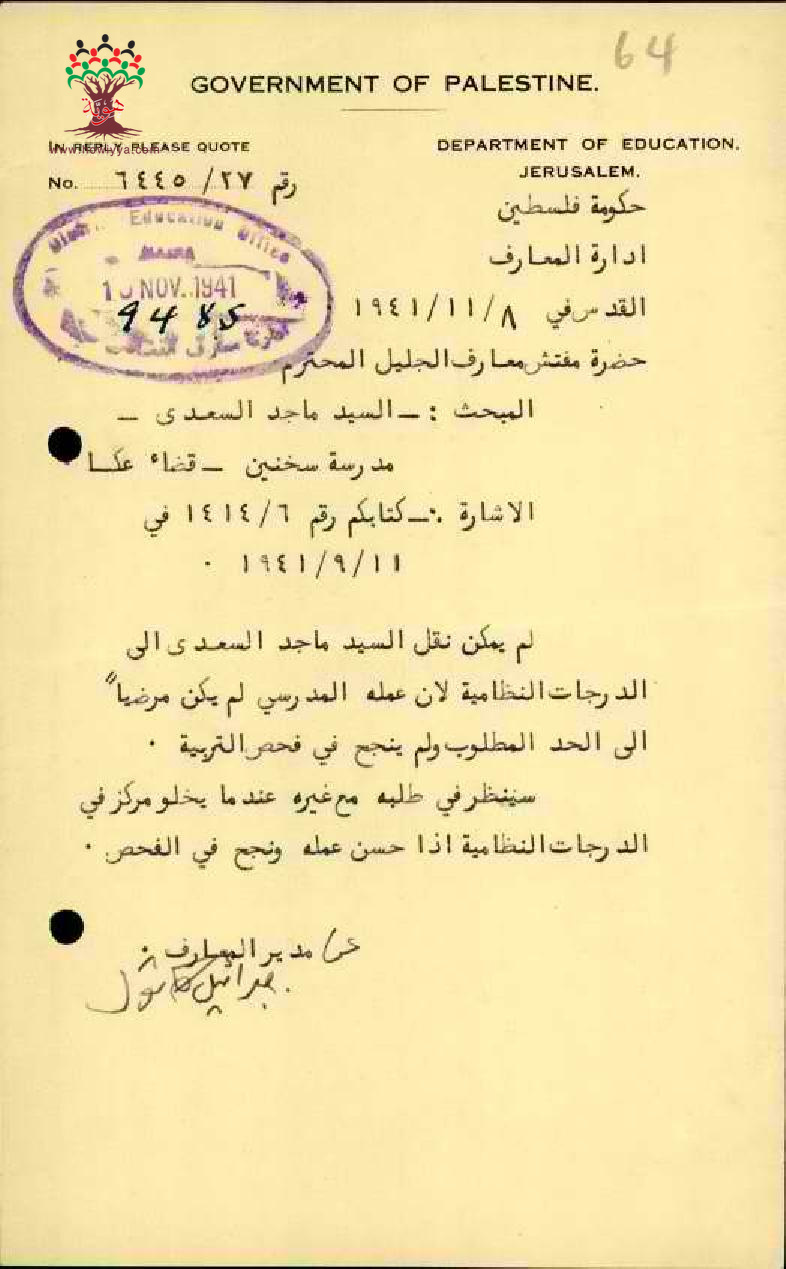 64
GOVERNMENT OF PALESTINE.
IN REPLY PLEASE QUOTE
www.howiyya.com
No. ٦٤٤٥/٢٧ رقم
DEPARTMENT OF EDUCATION,
JERUSALEM.
Education Office
NOV. 1941
9485
حكومة فلسطين
ادارة المعارف
القدس في ٨/١١/١٩٤١
حضرة مفتش معارف الجليل المحترم
المبحث :ـ السيد ماجد السعدى ـ
مدرسة سخنين ـ قضاء عكا
الاشارة :ـ كتابكم رقم ١٤١٤/٦ في
١١/٩/١٩٤١ ٠
لم يمكن نقل السيد ماجد السعدى الى
الدرجات النظامية لان عمله المدرسي لم يكن مرضياً
الى الحد المطلوب ولم ينجح في فحص التربية ٠
سينظر في طلبه مع غيره عندما يخلو مركز في
الدرجات النظامية اذا حسن عمله ونجح في الفحص ٠
عن/ مدير المعارف ٠
جبرائيل كاتول